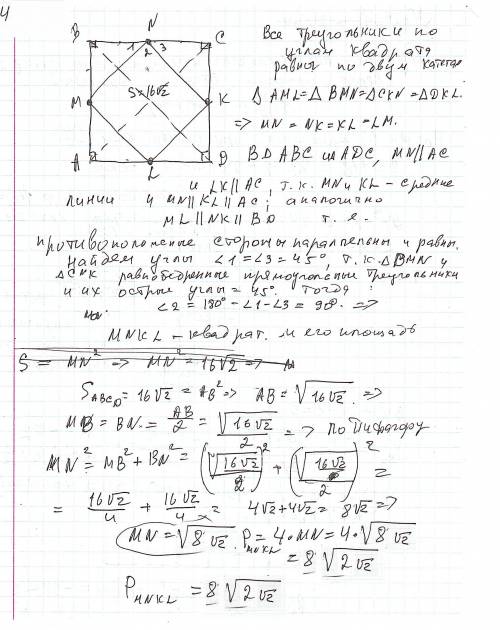 4
B N C
1 2 3
M K
S=16√2
A L D
Все треугольники по
углам квадрата
равны по двум катетам
Δ AML = Δ BMN = ΔCKN = ΔDKL.
=> MN = NK = KL = LM.
В Δ ABC и ADC, MN || AC
и LK || AC, т.к. MN и KL - средние
линии и MN||KL||AC; аналогично
ML || NK || BD т. е.
противоположные стороны параллельны и равны.
Найдем углы ∠1=∠3=45°, т.к. ΔBMN и
ΔCNK равнобедренные прямоугольные треугольники
и их острые углы = 45°. тогда
∠2 = 180° - ∠1 - ∠3 = 90°. =>
MNKL - квадрат. и его площадь
S = MN² => MN² = 16√2 =>
S ABCD = 16√2 = AB² => AB = √16√2. =>
MB = BN = AB/2 = √16√2/2 => по Пифагору
MN² = MB² + BN² = (√16√2/2)² + (√16√2/2)² =
= 16√2/4 + 16√2/4 = 4√2 + 4√2 = 8√2 =>
MN = √8√2. P MNKL = 4·MN = 4·√8√2
= 8√2√2
P MNKL = 8√2√2